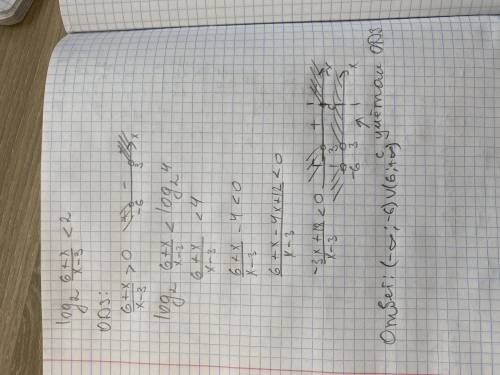 log₂ (6+x)/(x-3) < 2
ODЗ:
(6+x)/(x-3) > 0
+ - +
-6 3 x
log₂ (6+x)/(x-3) < log₂ 4
(6+x)/(x-3) < 4
(6+x)/(x-3) - 4 < 0
(6+x-4x+12)/(x-3) < 0
(-3x+18)/(x-3) < 0
Ответ: (-∞; -6) ∪ (6; +∞)
с учётом ODЗ